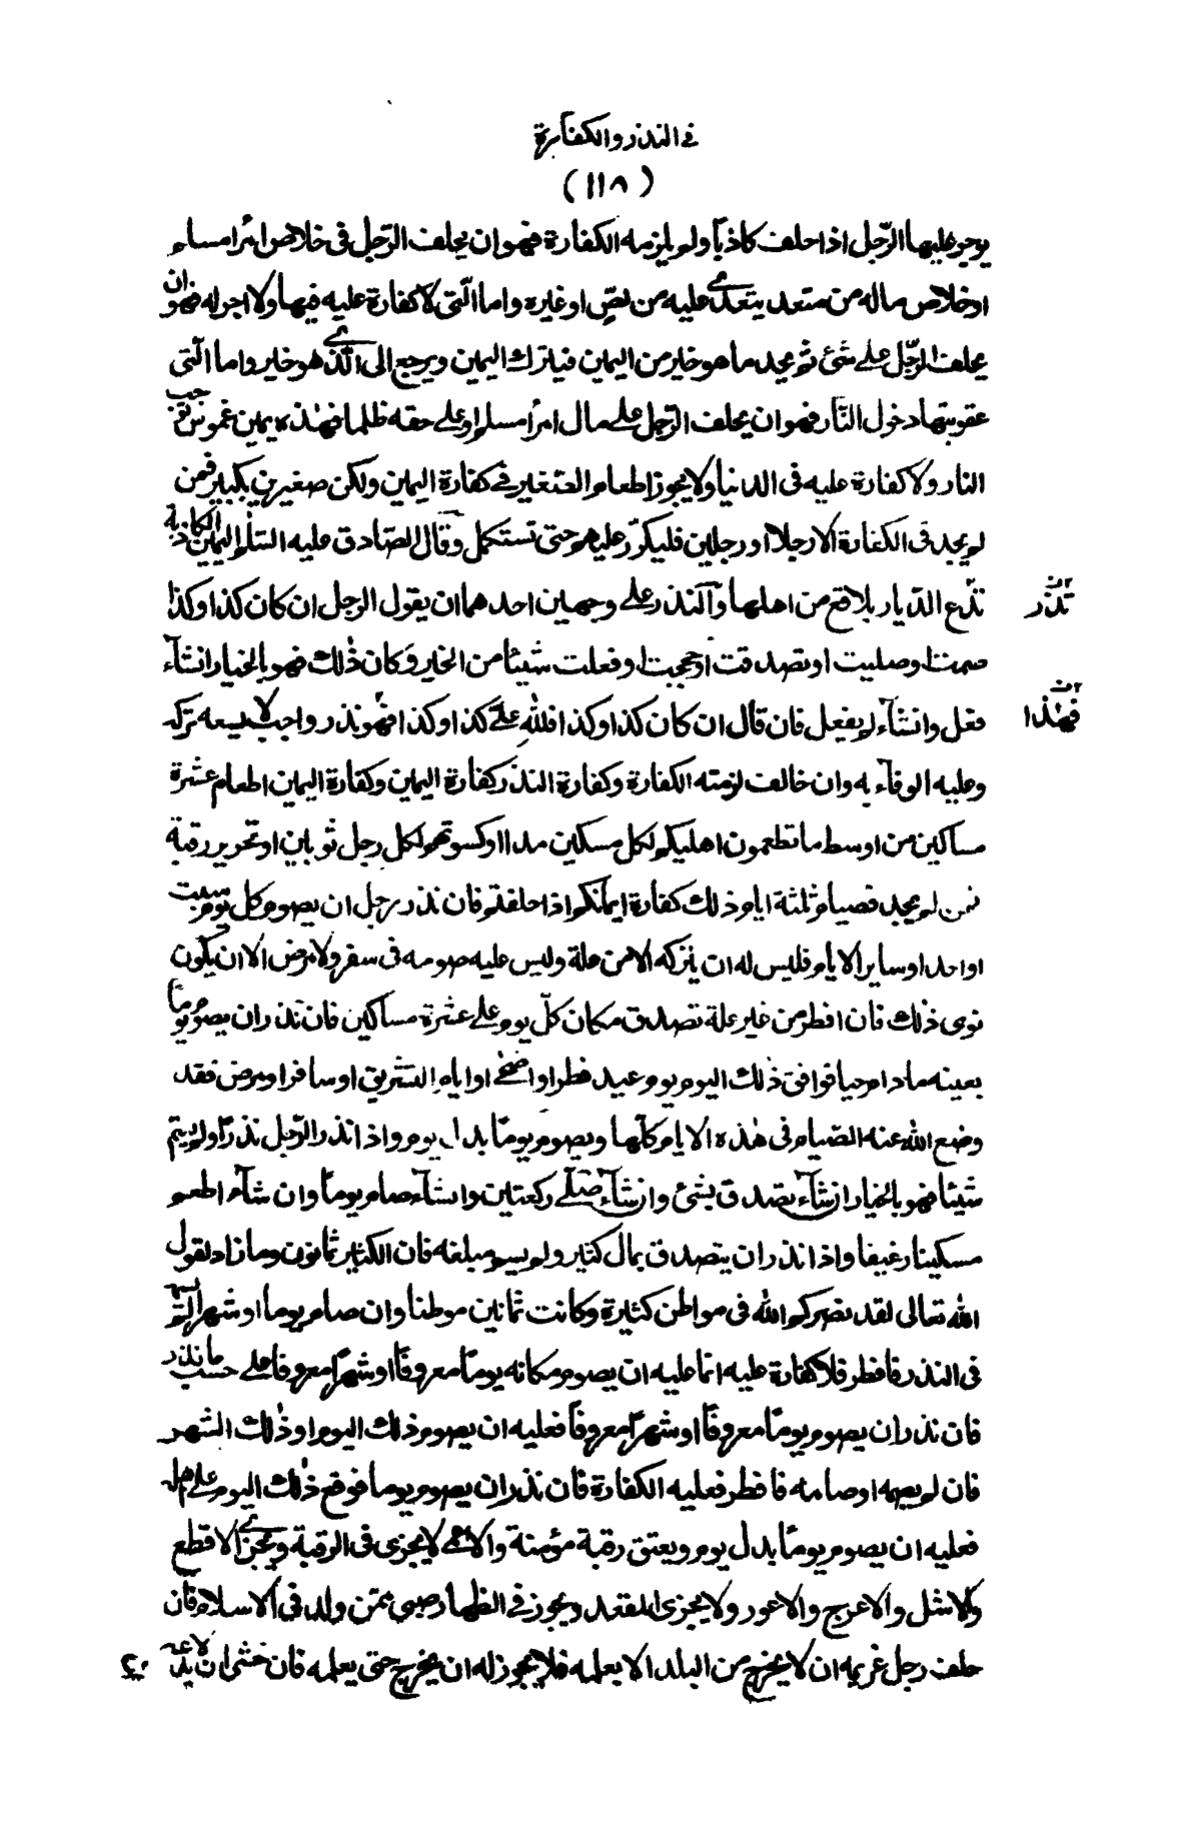 فى النذر والكفارة
(١١٨)
يوجر عليها الرّجل اذا حلف كاذبًا ولم يلزمه الكفارة فهو ان يحلف الرّجل فى خلاص امرأ مسلم
او خلاص ماله من متعد يتعدى عليه من لصٍّ او غيره واما الّتى لا كفارة عليه فيها ولا اجر له فهو ان
يحلف الرّجل على شئ ثم يجد ما هو خير من اليمين فيترك اليمين ويرجع الى الذى هو خير واما الّتى
عقوبتها دخول النّار فهو ان يحلف الرّجل على مال امرأ مسلم او على حقه ظلما فهذه يمين غموس توجب
النار ولا كفارة عليه فى الدنيا ولا يجوز اطعام الصّغير فى كفارة اليمين ولكن صغيرين بكبير فمن
لم يجد فى الكفارة الا رجلا او رجلين فليكرّر عليهم حتى تستكمل وقال الصّادق عليه السّلم اليمين الكاذبة
تذع الدّيار بلاقع من اهلها والنذر على وجهين احدهما ان يقول الرجل ان كان كذا وكذا
تذر
صمت او صليت او تصدقت او حججت او فعلت شيئًا من الخير وكان ذٰلك فهو بالخيار انشآء
فعل وانشآء لم يفعل فان قال ان كان كذا وكذا فللّٰه علىّ كذا وكذا فهو نذر واجب لا يسعه تركه
فهٰذا
وعليه الوفآء به وان خالف لزمته الكفارة وكفارة النذر كفارة اليمين وكفارة اليمين اطعام عشرة
مساكين من اوسط ما تطعمون اهليكم لكل مسكين مد او كسوتهم لكل رجل ثوبان او تحرير رقبة
فمن لم يجد فصيام ثلثة ايام ذلك كفارة ايمانكم اذا حلفتم فان نذر رجل ان يصوم كل يوم سبت
او احد او ساير الايام فليس له ان يتركه الا من علة وليس عليه صومه فى سفر ولا مرض الا ان يكون
نوى ذلك فان افطر من غير علة تصدق مكان كلّ يوم على عشرة مساكين فان نذر ان يصوم يومًا
بعينه ما دام حيا فوافق ذٰلك اليوم يوم عيد فطر او اضحى او ايام التشريق او سافر او مرض فقد
وضع اللّٰه عنه الصّيام فى هٰذه الايام كلّها ويصوم يومًا بدل يوم واذا نذر الرّجل نذرًا ولم يسمّ
شيئًا فهو بالخيار ان شآء تصدق بشئ وان شآء صلّى ركعتين وانشآء صام يومًا وان شآء اطعم
مسكينا رغيفا واذا نذر ان يتصدق بمال كثير ولم يسم مبلغه فان الكثير ثمانون وما زاد لقول
اللّٰه تعالى لقد نصركم اللّٰه فى مواطن كثيرة وكانت ثمانين موطنا وان صام يوما او شهرا لم يسمه
فى النذر فافطر فلا كفارة عليه انما عليه ان يصوم مكانه يومًا معروفًا او شهرًا معروفا على حسب ما نذر
فان نذر ان يصوم يومًا معروفًا او شهرًا معروفًا فعليه ان يصوم ذلك اليوم او ذٰلك الشهر
فان لم يصمه او صامه فافطر فعليه الكفارة فان نذر ان يصوم يوما فوقع ذٰلك اليوم على اهله
فعليه ان يصوم يومًا بدل يوم ويعتق رقبة مؤمنة والاعمى لا يجزى فى الرقبة ويجزى الاقطع
والاشل والاعرج والاعور ولا يجزى المقعد ويجوز فى الظهار صبى ممن ولد فى الاسلام فان
حلف رجل غريمه ان لا يخرج من البلد الا بعلمه فلا يجوز له ان يخرج حتى يعلمه فان خشى ان لا يدعه